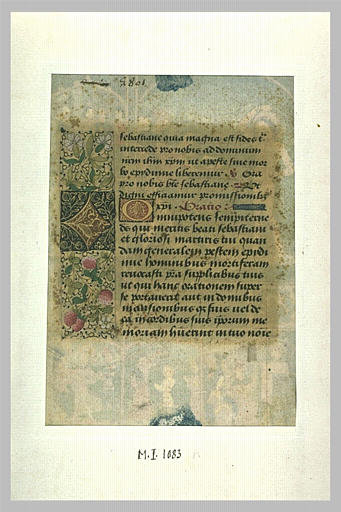 sebastiane quia magna est fides t
intercede pro nobis ad dominum
ut a peste sive mor
bo epydimie liberemur Ora
pro nobis bte sebastiane
digni efficiamur promissionib
Oratio
omnipotens sempiterne
de qui meritis beati sebastiani
et gloriosi martiris tui quan
dam generalem pestem epydi
mie hominibus mortiferam
revocasti supplicibus tuis
ut qui hanc orationem super
se portaverit aut in domibus
mansionibus vel de
in cordibus suis ipsorum me
moriam in tuo noie
M.I. 1083